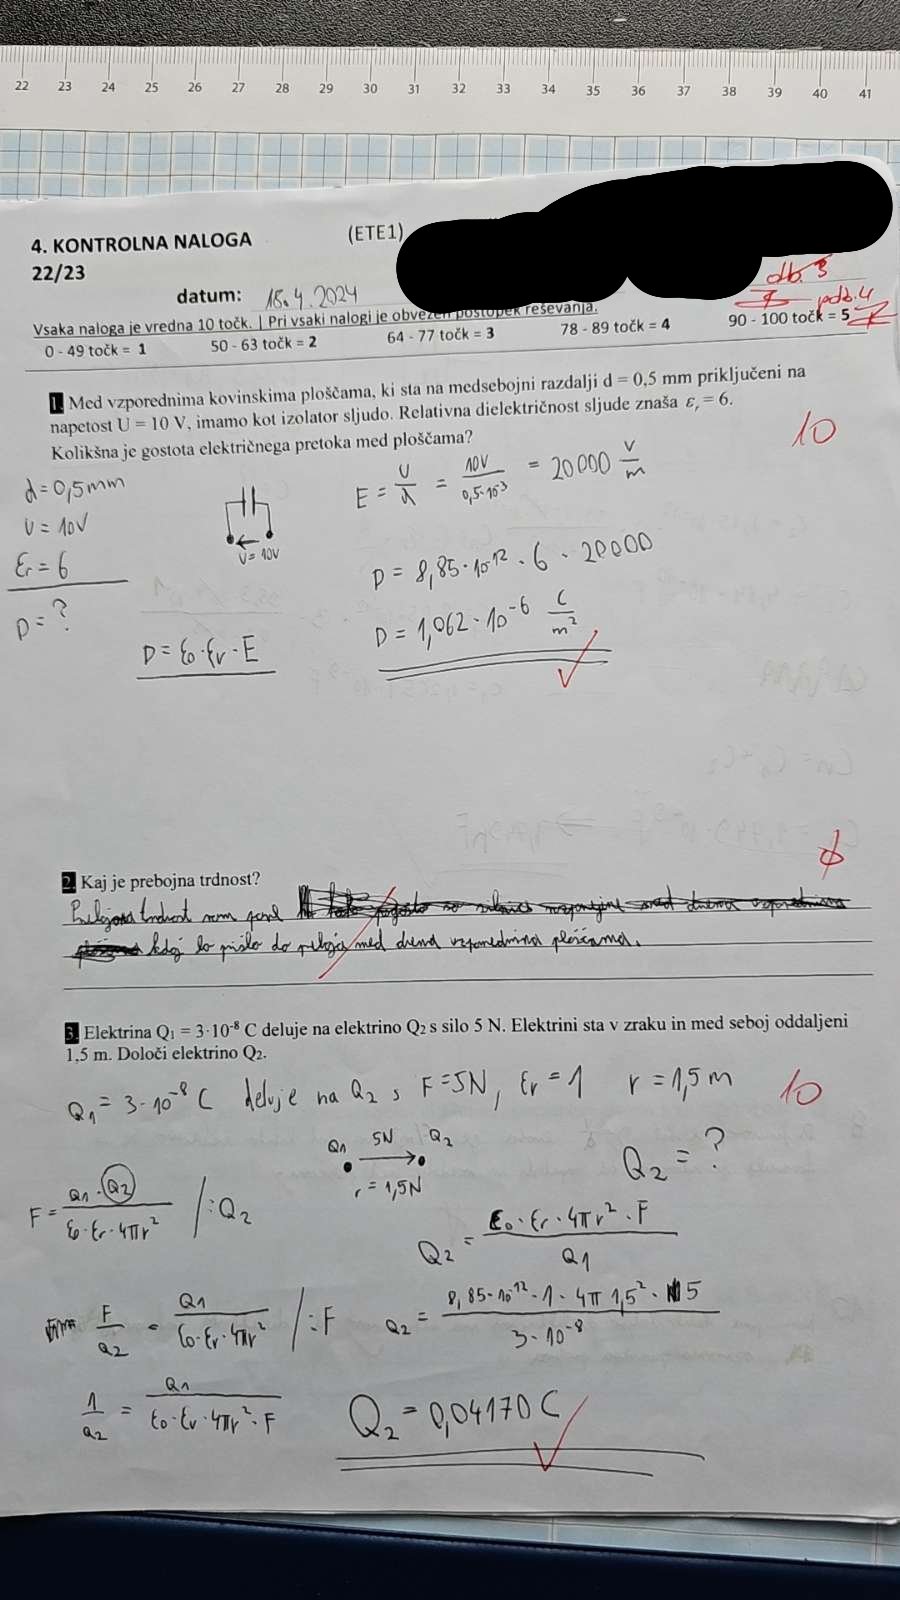 22 23 24 25 26 27 28 29 30 31 32 33 34 35 36 37 38 39 40 41
4. KONTROLNA NALOGA (ETE1)
22/23
datum: 18.4.2024
Vsaka naloga je vredna 10 točk. | Pri vsaki nalogi je obvezen postopek reševanja.
0 - 49 točk = 1 50 - 63 točk = 2 64 - 77 točk = 3 78 - 89 točk = 4 90 - 100 točk = 5
1. Med vzporednima kovinskima ploščama, ki sta na medsebojni razdalji d = 0,5 mm priključeni na
napetost U = 10 V, imamo kot izolator sljudo. Relativna dielektričnost sljude znaša εr = 6.
Kolikšna je gostota električnega pretoka med ploščama?
10
d = 0,5 mm
U = 10V
εr = 6
D = ?
U = 10V
D = ε0 · εr · E
E = U/d = 10V/0,5·10⁻³ = 20000 V/m
D = 8,85 · 10⁻¹² · 6 · 20000
D = 1,062 · 10⁻⁶ C/m²
2. Kaj je prebojna trdnost?
trdnost nam
kdaj bo prišlo do preboja med dvema vzporednima ploščama.
3. Elektrina Q₁ = 3·10⁻⁸ C deluje na elektrino Q₂ s silo 5 N. Elektrini sta v zraku in med seboj oddaljeni
1,5 m. Določi elektrino Q₂.
10
Q₁ = 3·10⁻⁸ C deluje na Q₂ s F = 5N, εr = 1 r = 1,5 m
Q₁ 5N Q₂
r = 1,5N
Q₂ = ?
F = Q₁ · Q₂/ε0 · εr · 4πr² /:Q₂
Q₂ = ε0 · εr · 4πr² · F/Q₁
F/Q₂ = Q₁/ε0 · εr · 4πr² /:F
Q₂ = 8,85·10⁻¹² · 1 · 4π 1,5² · 5/3·10⁻⁸
1/Q₂ = Q₁/ε0 · εr · 4πr² · F
Q₂ = 0,04170 C